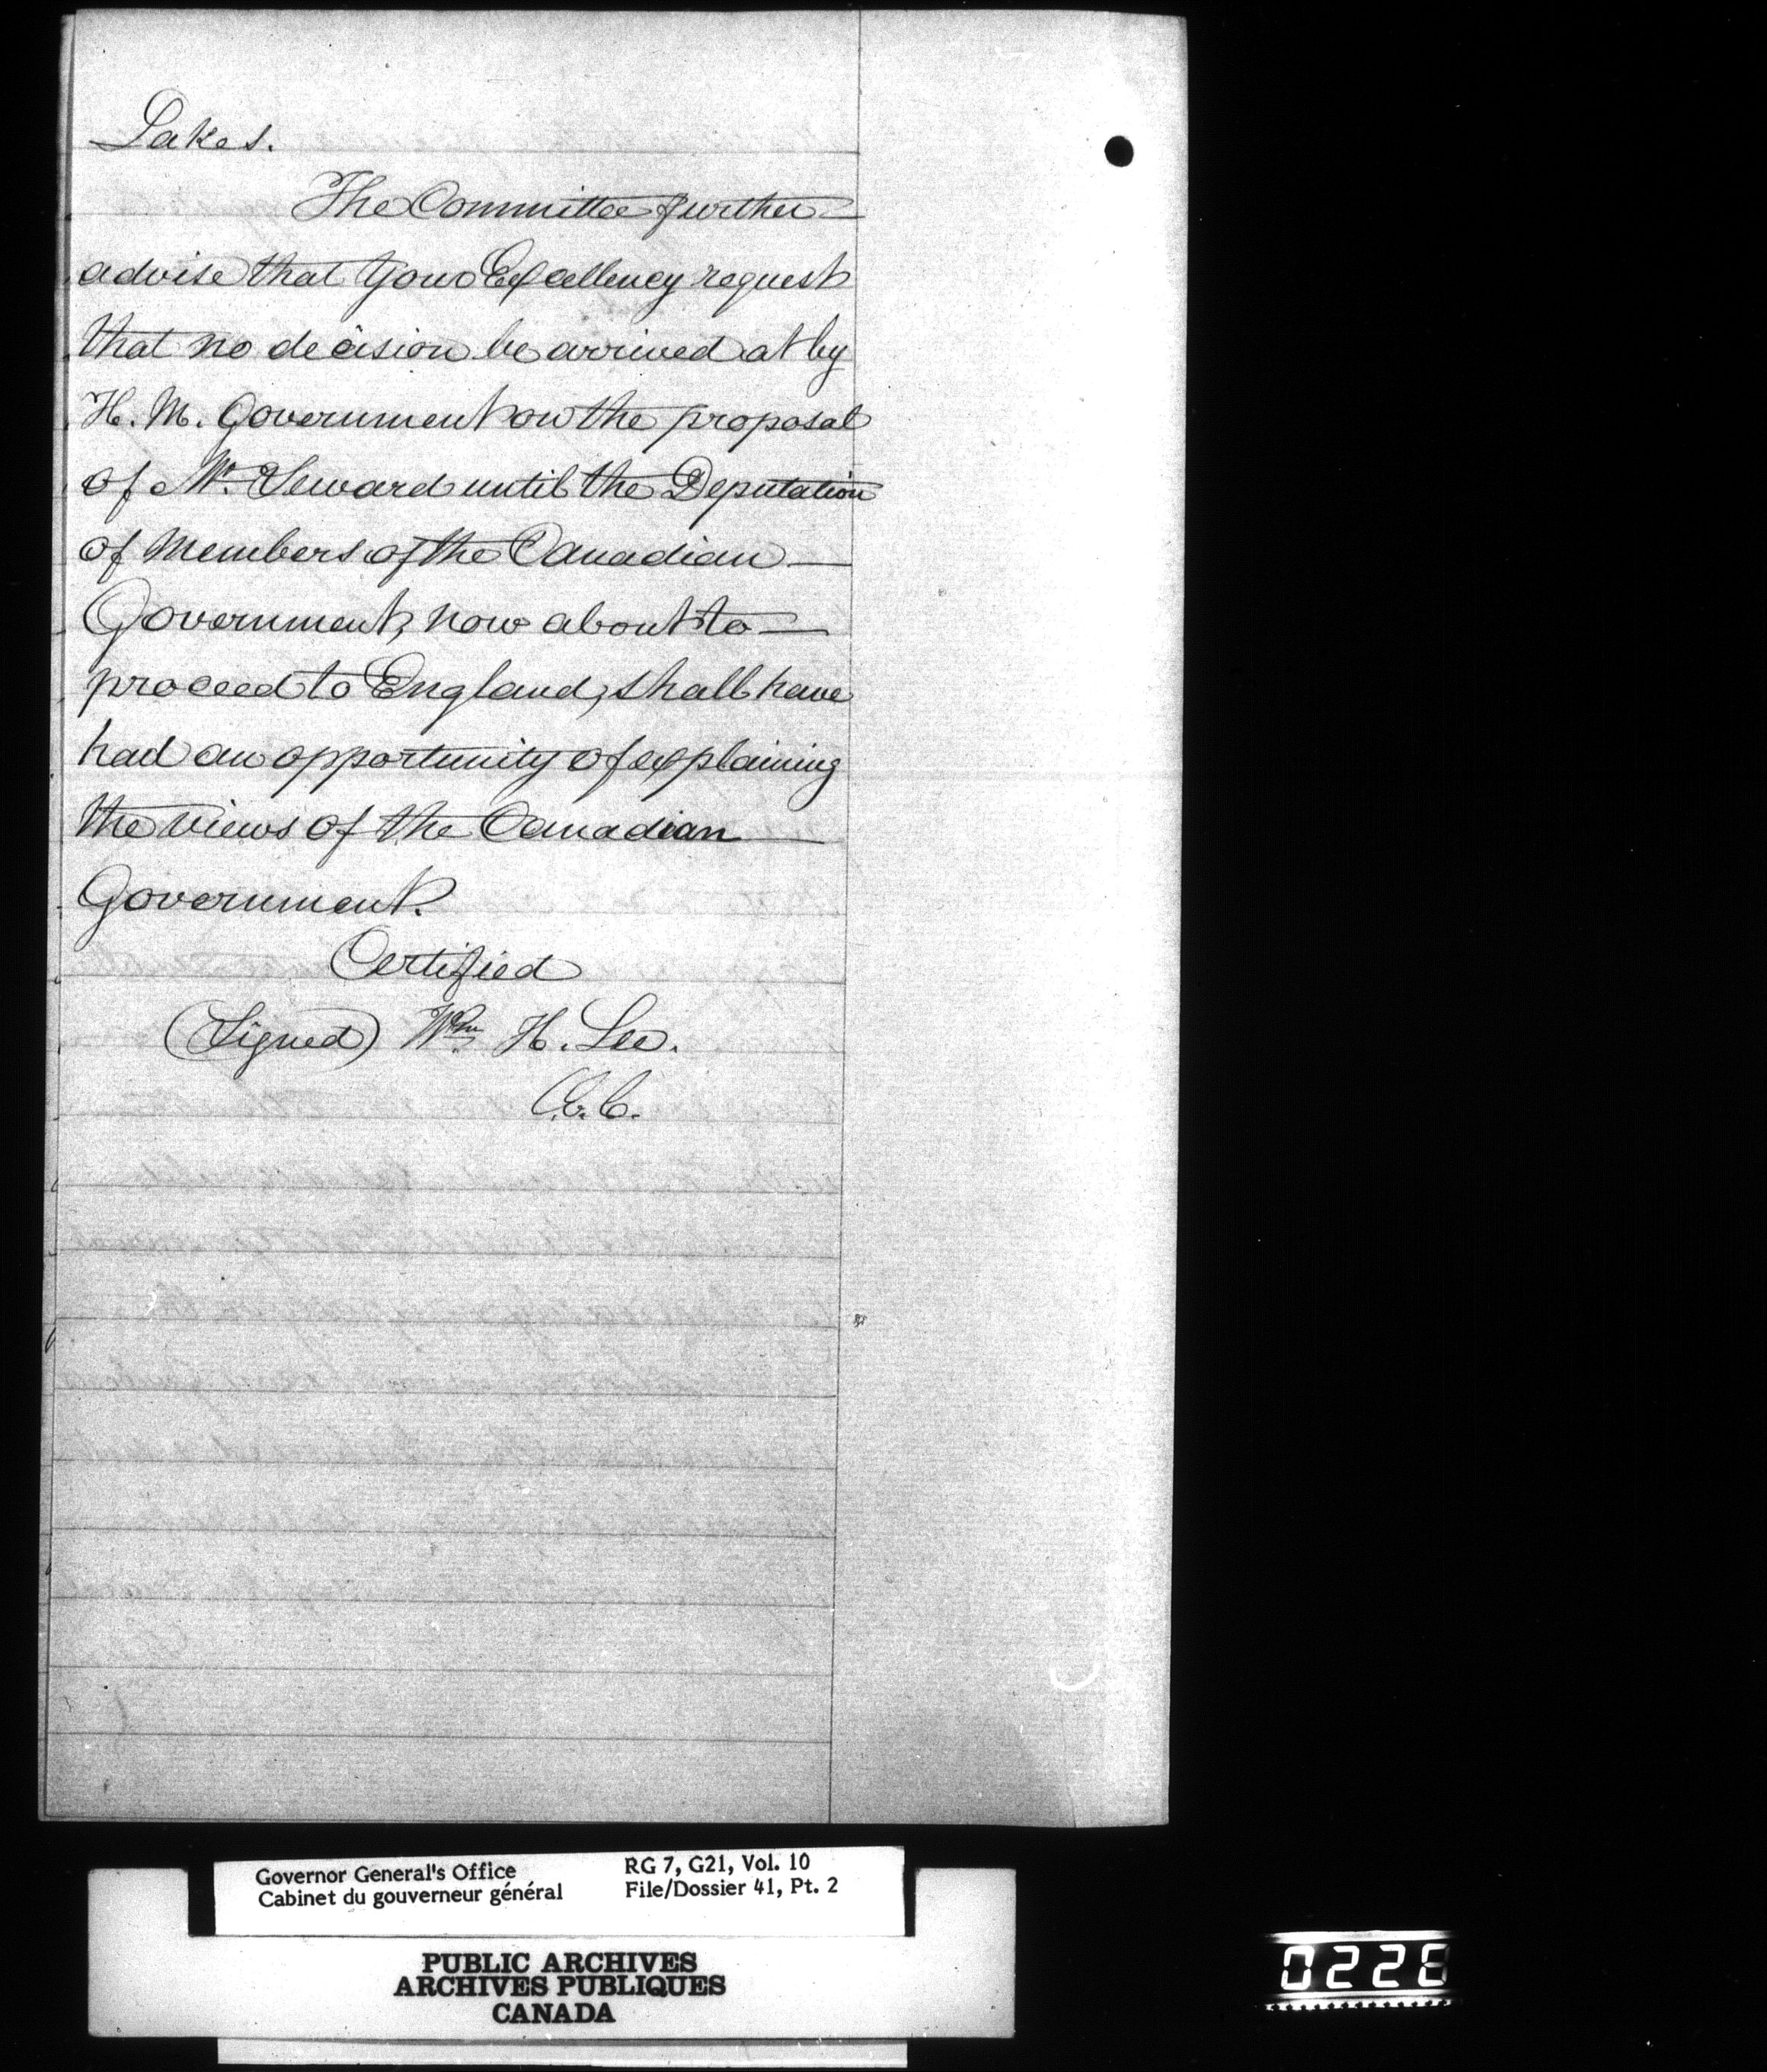 Lakes.
The Committee further
advise that Your Excellency request
that no decision be arrived at by
H. M. Government on the proposal
of Mr. Seward until the Deputation
of Members of the Canadian
Government, now about to
proceed to England, shall have
had an opportunity of explaining
the views of the Canadian
Government.
Certified
(Signed) Wm. H. Lee.
C.E.C.
Governor General's Office
Cabinet du gouverneur général
RG 7, G21, Vol. 10
File/Dossier 41, Pt. 2
PUBLIC ARCHIVES
ARCHIVES PUBLIQUES
CANADA